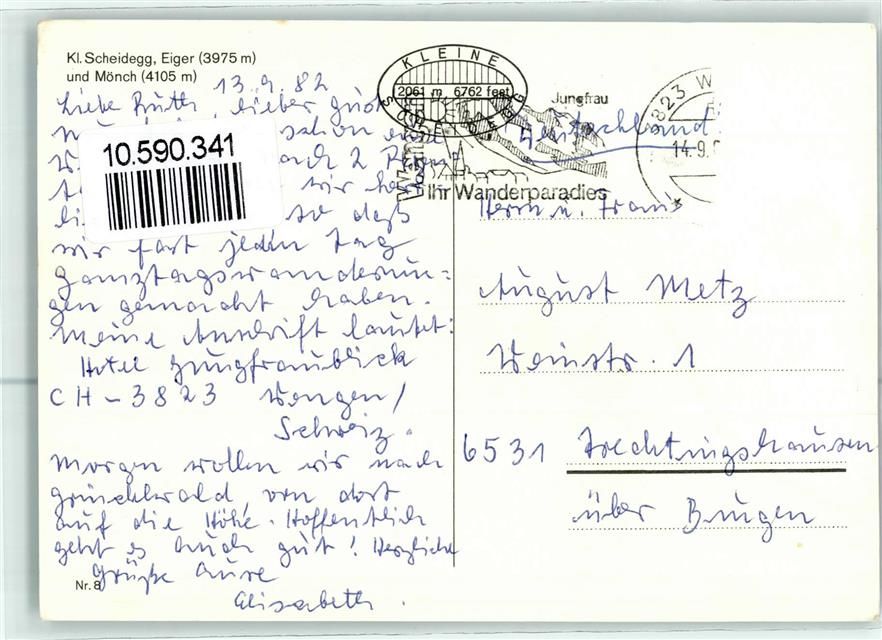 Kl. Scheidegg, Eiger (3975 m)
und Mönch (4105 m)
13.9.82
Liebe Ruth, lieber
schon
10.590.341
2
wir
so daß
wir fast jeden Tag
Ganztagswanderun=
gen gemacht haben.
Meine Anschrift lautet:
Hotel Jungfraublick
CH - 3823 Wengen/
Schweiz.
Morgen wollen wir nach
Grindelwald, von dort
auf die Höhe. Hoffentlich
geht es Euch gut! Herzliche
Grüße Eure
Elisabeth.
Nr. 8
KLEINE
2061 m, 6762 feet
SCHEIDEGG
Jungfrau
Ihr Wanderparadies
14.9.
Deutschland
Herrn u. Frau
August Metz
Weinstr. 1
6531 Trechtingshausen
über Bingen